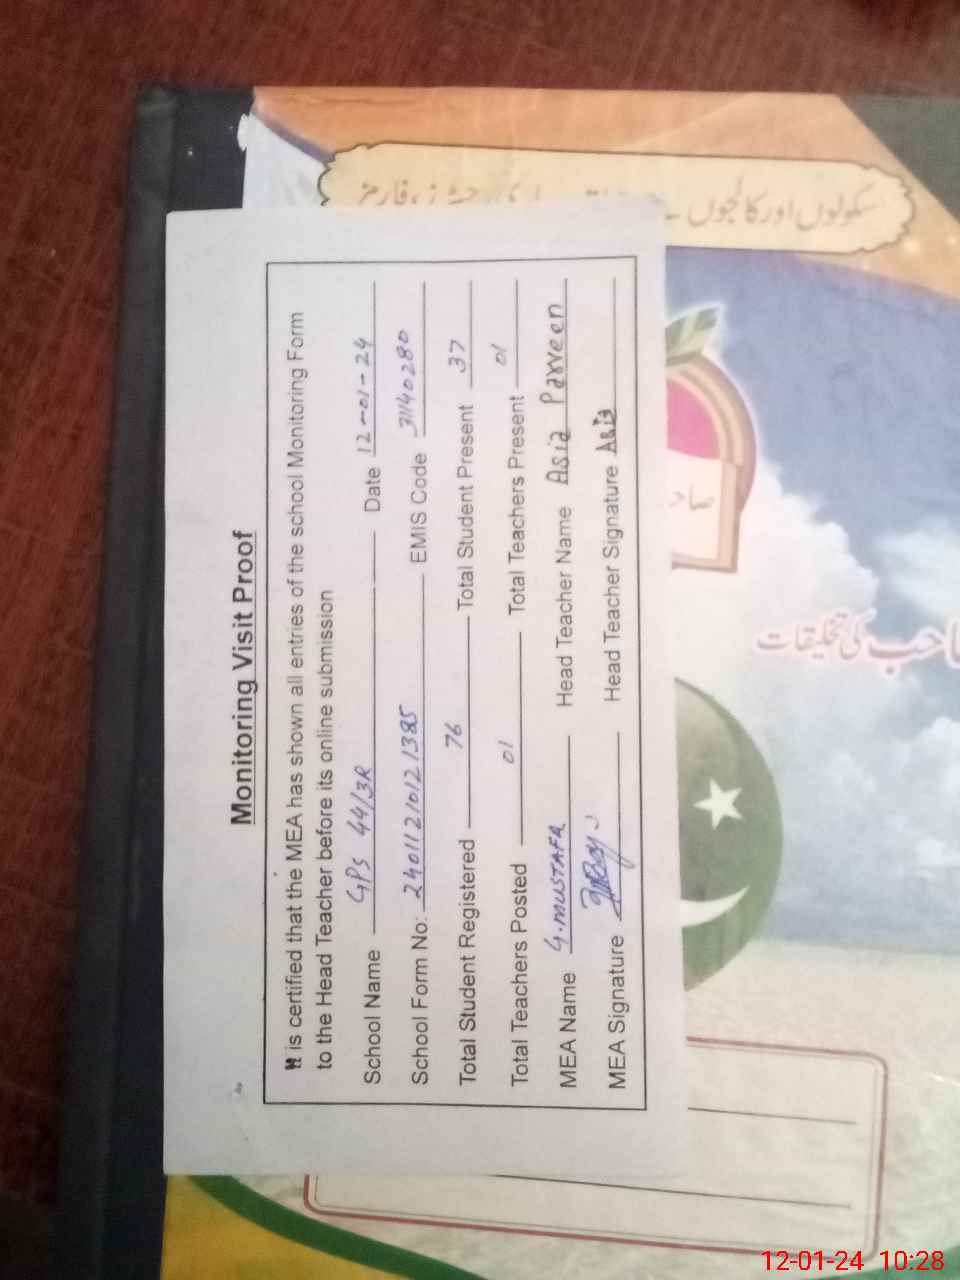 سکولوں اور کالجوں
رجسٹرز، فارمز
Monitoring Visit Proof
It is certified that the MEA has shown all entries of the school Monitoring Form
to the Head Teacher before its online submission
School Name GPS 44/3R Date 12-01-24
School Form No: 240112101121385 EMIS Code 31140280
Total Student Registered 76 Total Student Present 37
Total Teachers Posted 01 Total Teachers Present 01
MEA Name G.MUSTAFA Head Teacher Name Asia Parveen
MEA Signature Head Teacher Signature Asia
صاحب کی تخلیقات
12-01-24 10:28